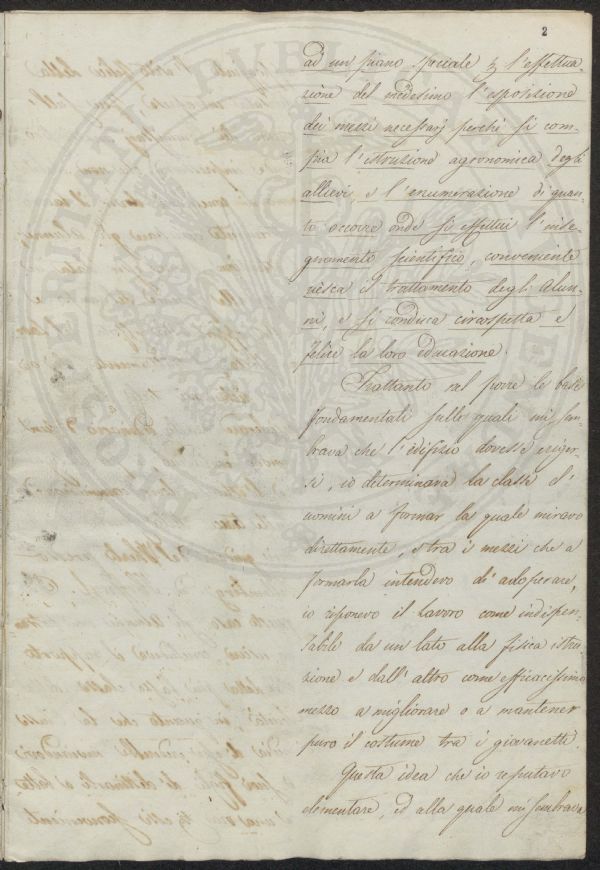 2
ad un piano speciale p l'effettua-
zione del medesimo l'esposizione
dei mezzi necessarj perchè si com-
pia l'istruzione agronomica degli
allievi, e l'enumerazione di quan-
to occorre onde si effettui l'inse-
gnamento scientifico, conveniente
riesca il trattamento degli Alun-
ni, e si conduca circospetta e
felice la loro educazione.
Trattanto nel porre le basi
fondamentali sulle quali mi sem-
brava che l'edifizio dovesse eriger-
si, io determinava la classe d'
uomini a formar la quale miravo
direttamente, e tra i mezzi che a
formarla intendevo di adoperare,
io riponevo il lavoro come indispen-
sabile da un lato alla fisica istru-
zione e dall'altro come efficacissimo
mezzo a migliorare o a mantener
puro il costume tra i giovanetti.
Questa idea che io reputavo
elementare, ed alla quale mi sembrava